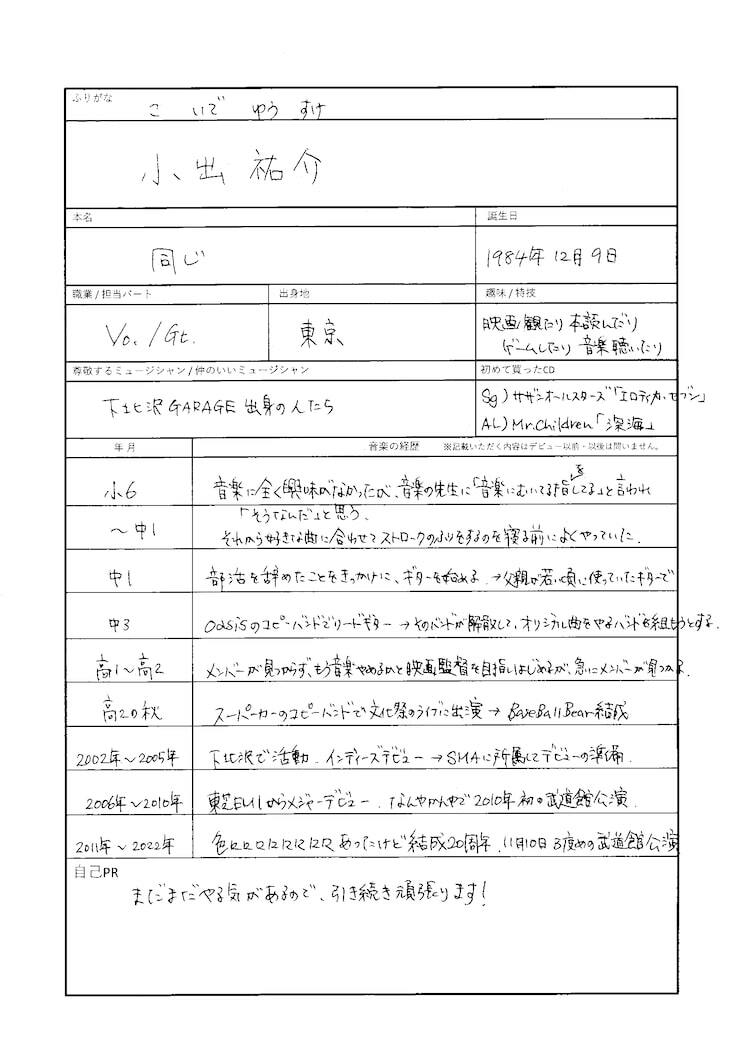 ふりがな
こいで ゆうすけ
小出 祐介
本名
誕生日
同じ
1984年12月9日
職業/担当パート
出身地
趣味/特技
Vo./Gt.
東京
映画観たり 本読んだり
ゲームしたり 音楽聴いたり
尊敬するミュージシャン/仲のいいミュージシャン
初めて買ったCD
下北沢GARAGE出身の人たち
Sg)サザンオールスターズ「エロティカ・セブン」
AL)Mr.Children「深海」
年月
音楽の経歴 ※記載いただく内容はデビュー以前・以後は問いません。
小6
音楽に全く興味がなかったが、音楽の先生に「音楽にむいてる指をしてる」と言われ
「そうなんだ」と思う。
〜中1
それから好きな曲に合わせてストロークのふりをするのを寝る前によくやっていた。
中1
部活を辞めたことをきっかけに、ギターを始める。→父親が若い頃に使っていたギターで
中3
Oasisのコピーバンドでリードギター →そのバンドが解散して、オリジナル曲をやるバンドを組もうとする。
高1〜高2
メンバーが見つからず、もう音楽やめるかと映画監督を目指しはじめるが、急にメンバーが見つかる。
高2の秋
スーパーカーのコピーバンドで文化祭のライブに出演 → Base Ball Bear結成
2002年〜2005年
下北沢で活動。インディーズデビュー →SMAに所属してデビューの準備。
2006年〜2010年
東芝EMIからメジャーデビュー。なんやかんやで2010年初の武道館公演。
2011年〜2022年
色々あったけど結成20周年。11月10日3度めの武道館公演
自己PR
まだまだやる気があるので、引き続き頑張ります!